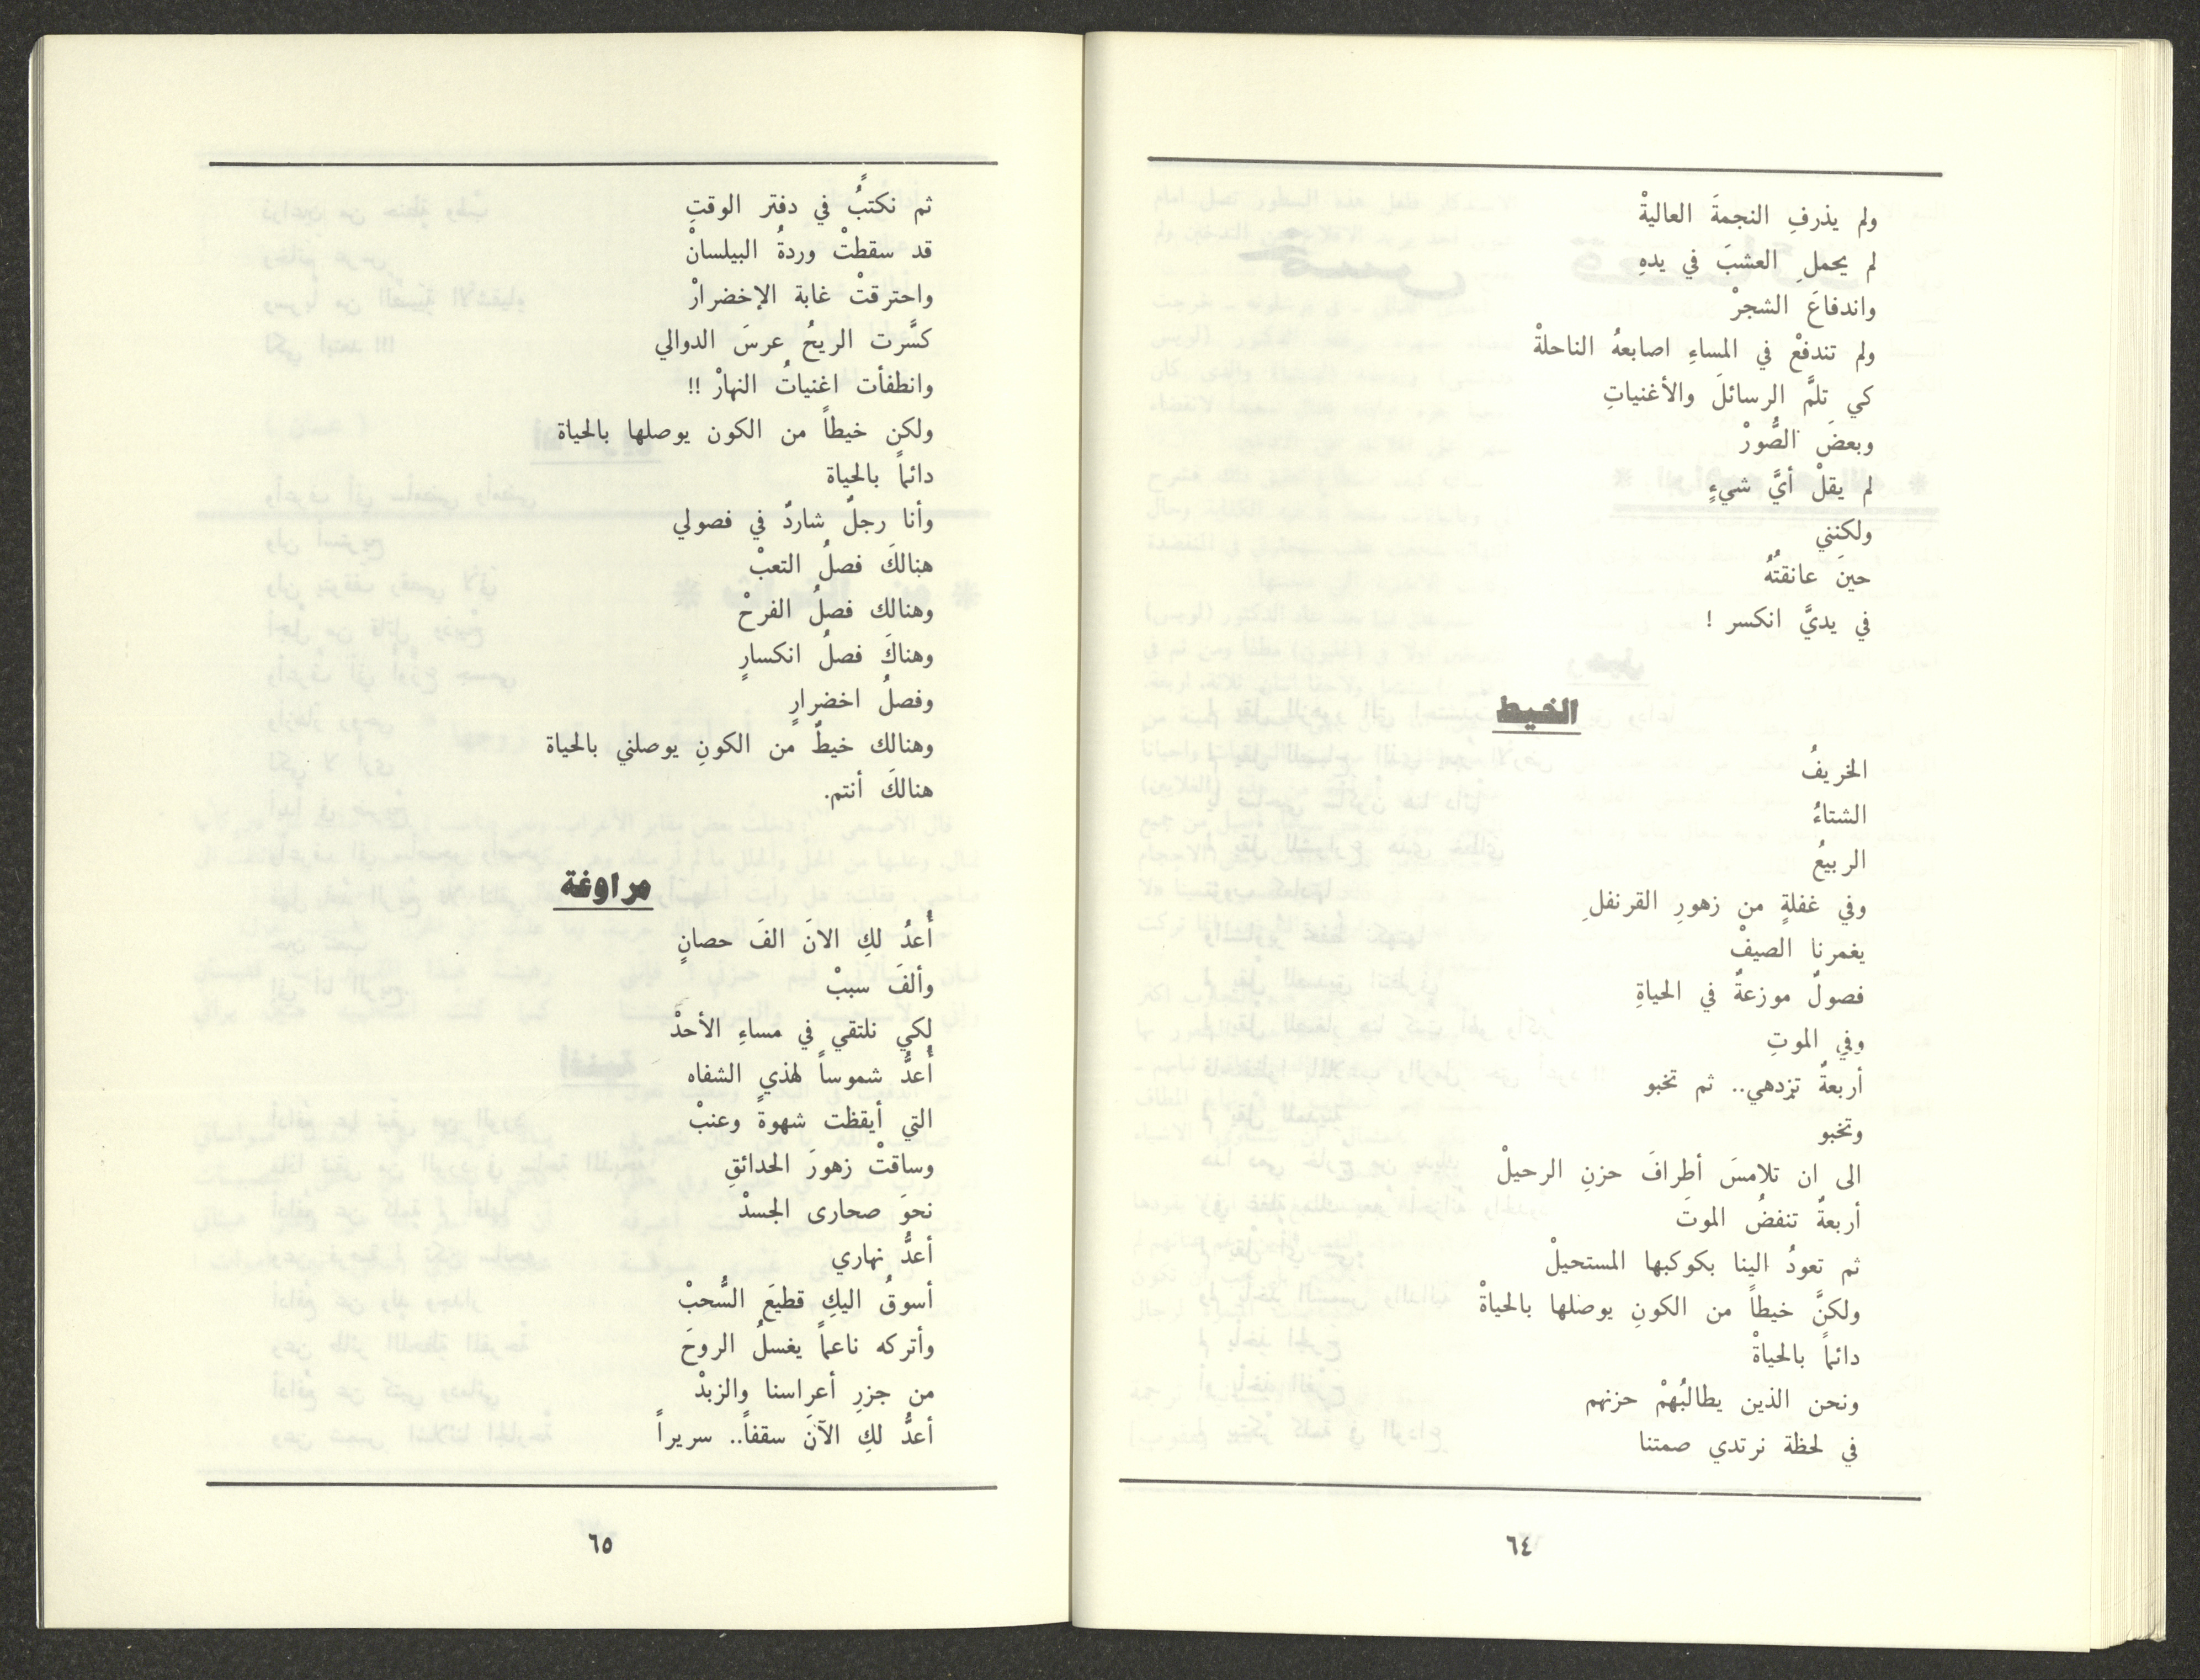 ولم يذرفِ النجمةَ العاليةْ
لم يحملِ العشبَ في يدهِ
واندفاعَ الشجرْ
ولم تندفعْ في المساءِ اصابعهُ الناحلةْ
كي تلمَّ الرسائلَ والأغنياتِ
وبعضَ الصُّورْ
لم يقلْ أيَّ شيءٍ
ولكنني
حينَ عانقتُهُ
في يديَّ انكسر !
الخيط
الخريفُ
الشتاءُ
الربيعُ
وفي غفلةٍ من زهورِ القرنفلِ
يغمرنا الصيفْ
فصولٌ موزعةٌ في الحياةِ
وفي الموتِ
أربعةٌ تزدهي.. ثم تخبو
وتخبو
الى ان تلامسَ أطرافَ حزنِ الرحيلْ
أربعةٌ تنفضُ الموتَ
ثم تعودُ الينا بكوكبها المستحيلْ
ولكنَّ خيطاً من الكونِ يوصلها بالحياةْ
دائماً بالحياةْ
ونحن الذين يطالبُهمْ حزنهم
في لحظة نرتدي صمتنا
٦٤
ثم نكتبُ في دفتر الوقتِ
قد سقطتْ وردةُ البيلسانْ
واحترقتْ غابة الإخضرارْ
كسَّرت الريحُ عرسَ الدوالي
وانطفأت اغنياتُ النهارْ !!
ولكن خيطاً من الكون يوصلها بالحياة
دائماً بالحياة
وأنا رجلٌ شاردٌ في فصولي
هنالكَ فصلُ التعبْ
وهنالك فصلُ الفرحْ
وهناكَ فصلُ انكسارٍ
وفصلُ اخضرارٍ
وهنالك خيطٌ من الكونِ يوصلني بالحياة
هنالكَ أنتم.
مراوغة
أُعدُ لكِ الانَ الفَ حصانٍ
وألفَ سببْ
لكي نلتقي في مساءِ الأحدْ
أُعدُّ شموساً لهذي الشفاه
التي أيقظت شهوةً وعنبْ
وساقتْ زهورَ الحدائقِ
نحوَ صحارى الجسدْ
أعدُّ نهاري
أسوقُ اليكِ قطيعَ السُّحبْ
وأتركه ناعماً يغسلُ الروحَ
من جزرِ أعراسنا والزبدْ
أعدُّ لكِ الآنَ سقفاً.. سريراً
٦٥